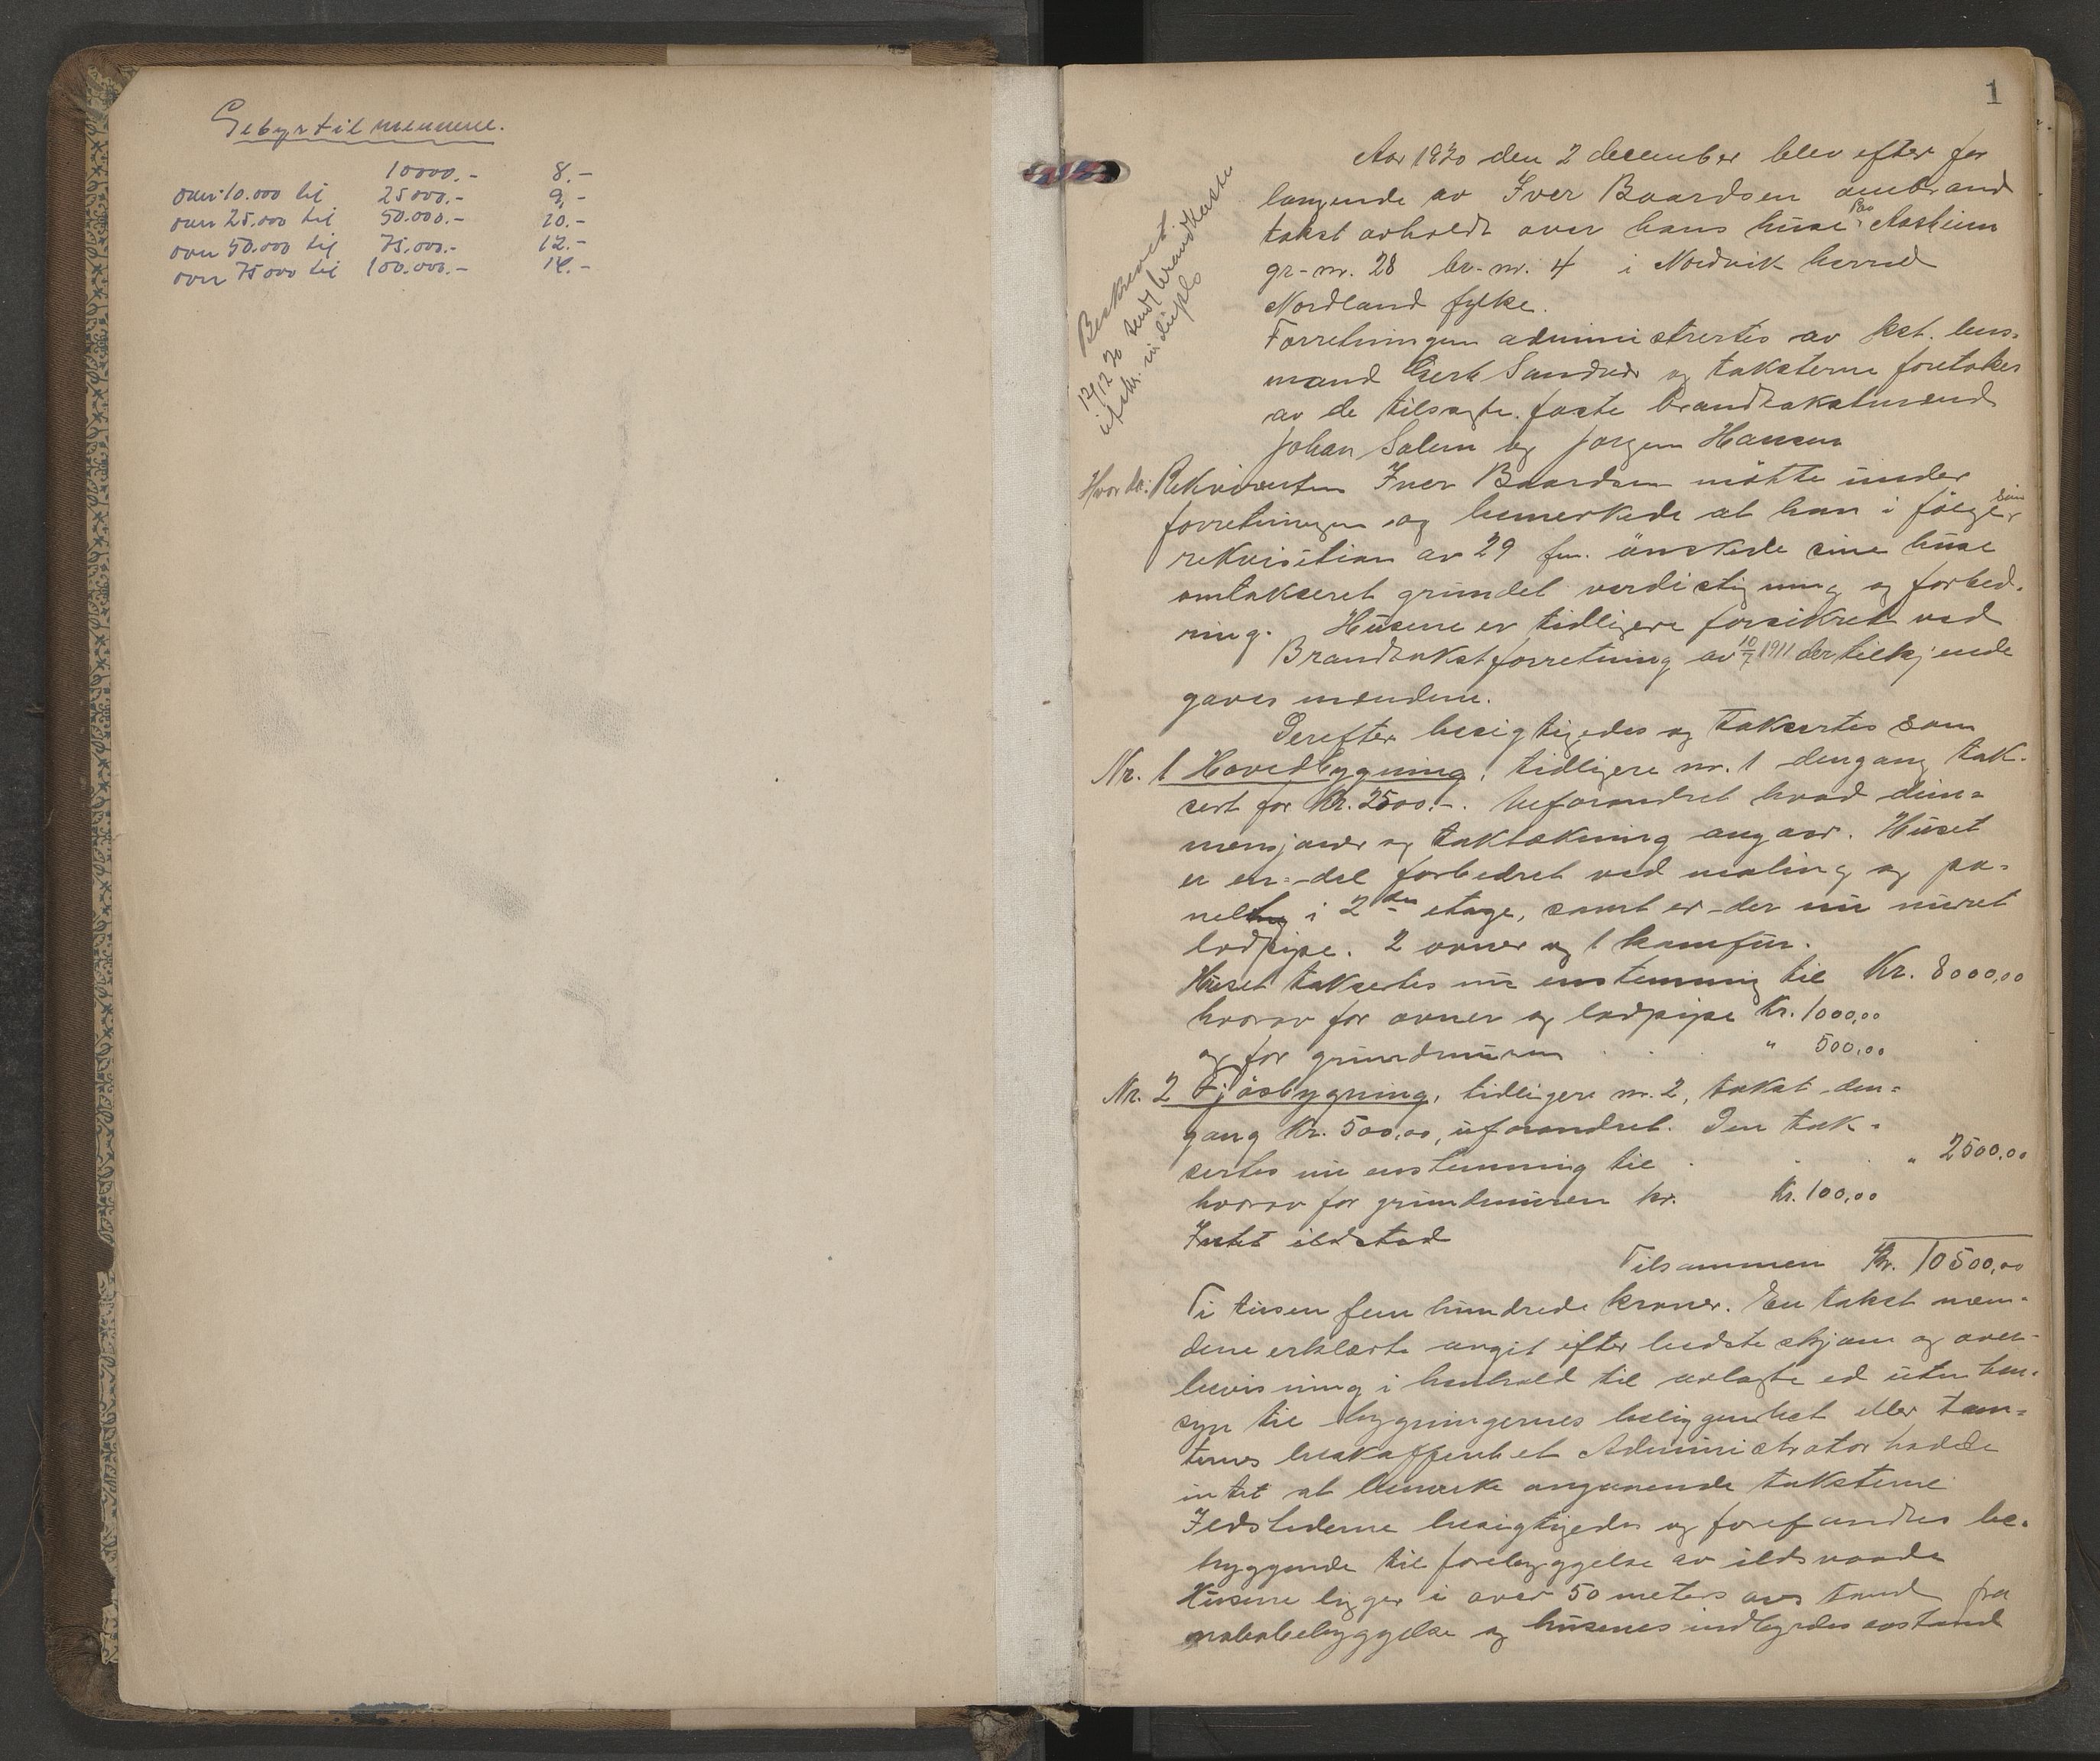 Gebyr til mennene.
10000.- 8.-
over 10.000 til 25000.- 9.-
over 25.000 til 50.000.- 10.-
over 50.000 til 75.000.- 12.-
over 75000 til 100.000.- 14.-
1
Aar 1920 den 2 december blev efter for
langende av Iver Baardsen ombrand
takst avholdt over hans huse paa Aasheim
gr-nr. 28 br-nr. 4 i Nordvik herred
Nordland fylke.
Forretningen administrertes av kst. lens-
mand Gerh Sandnes og taksterne foretokes
av de tilsagte faste brandtakstmænd
Johan Salem og Jørgen Hansen
Beskrevet.
12/12 20 sendt brandkassen
utskr. in duplo
Hvorda: Rekvirenten Iver Baardsen møtte under
forretningen og bemerkede at han i følge sin
rekvisition av 29 f.m. ønskede sine huse
omtakseret grundet verdistigning og forbed-
ring. Husene er tidligere forsikret ved
Brandtakstforretning av 10/7 1911 der tilkjende
gaves mændene.
Derefter besigtigedes og taksertes som
Nr. 1 Hovedbygning, tidligere nr. 1 dengang tak-
sert for kr. 2500.-. Uforandret hvad dim=
mensjoner og taktækning angaar. Huset
er en-del forbedret ved maling og pa-
neling i 2den etage, samt er der nu muret
lodpipe. 2 ovner og 1 komfur.
Huset taksertes nu enstemmig til Kr. 8000,00
hvorav for ovner og lodpipe Kr. 1000,00
og for grundmuren . . . " 500,00
Nr. 2 Fjøsbygning, tidligere nr. 2, takst den=
gang kr. 500,00, uforandret. Den tak-
sertes nu enstemmig til . . . " 2500,00
hvorav for grundmuren kr. Kr. 100,00
Intet ildsted
Tilsammen Kr. 10500,00
Ti tusen fem hundrede kroner. En takst mæn-
dene erklærte avgit efter bedste skjøn og over-
bevisning i henhold til avlagte ed uten hen-
syn til bygningernes beliggenhet eller tom=
ternes beskaffenhet Administrator hadde
intet at bemerke angaaende taksterne
Ildstederne besigtigedes og forefandtes be-
tryggende til forebyggelse av ildsvaade
Husene ligger i over 50 meters avstand fra
nabobebyggelse og husenes indbyrdes avstand